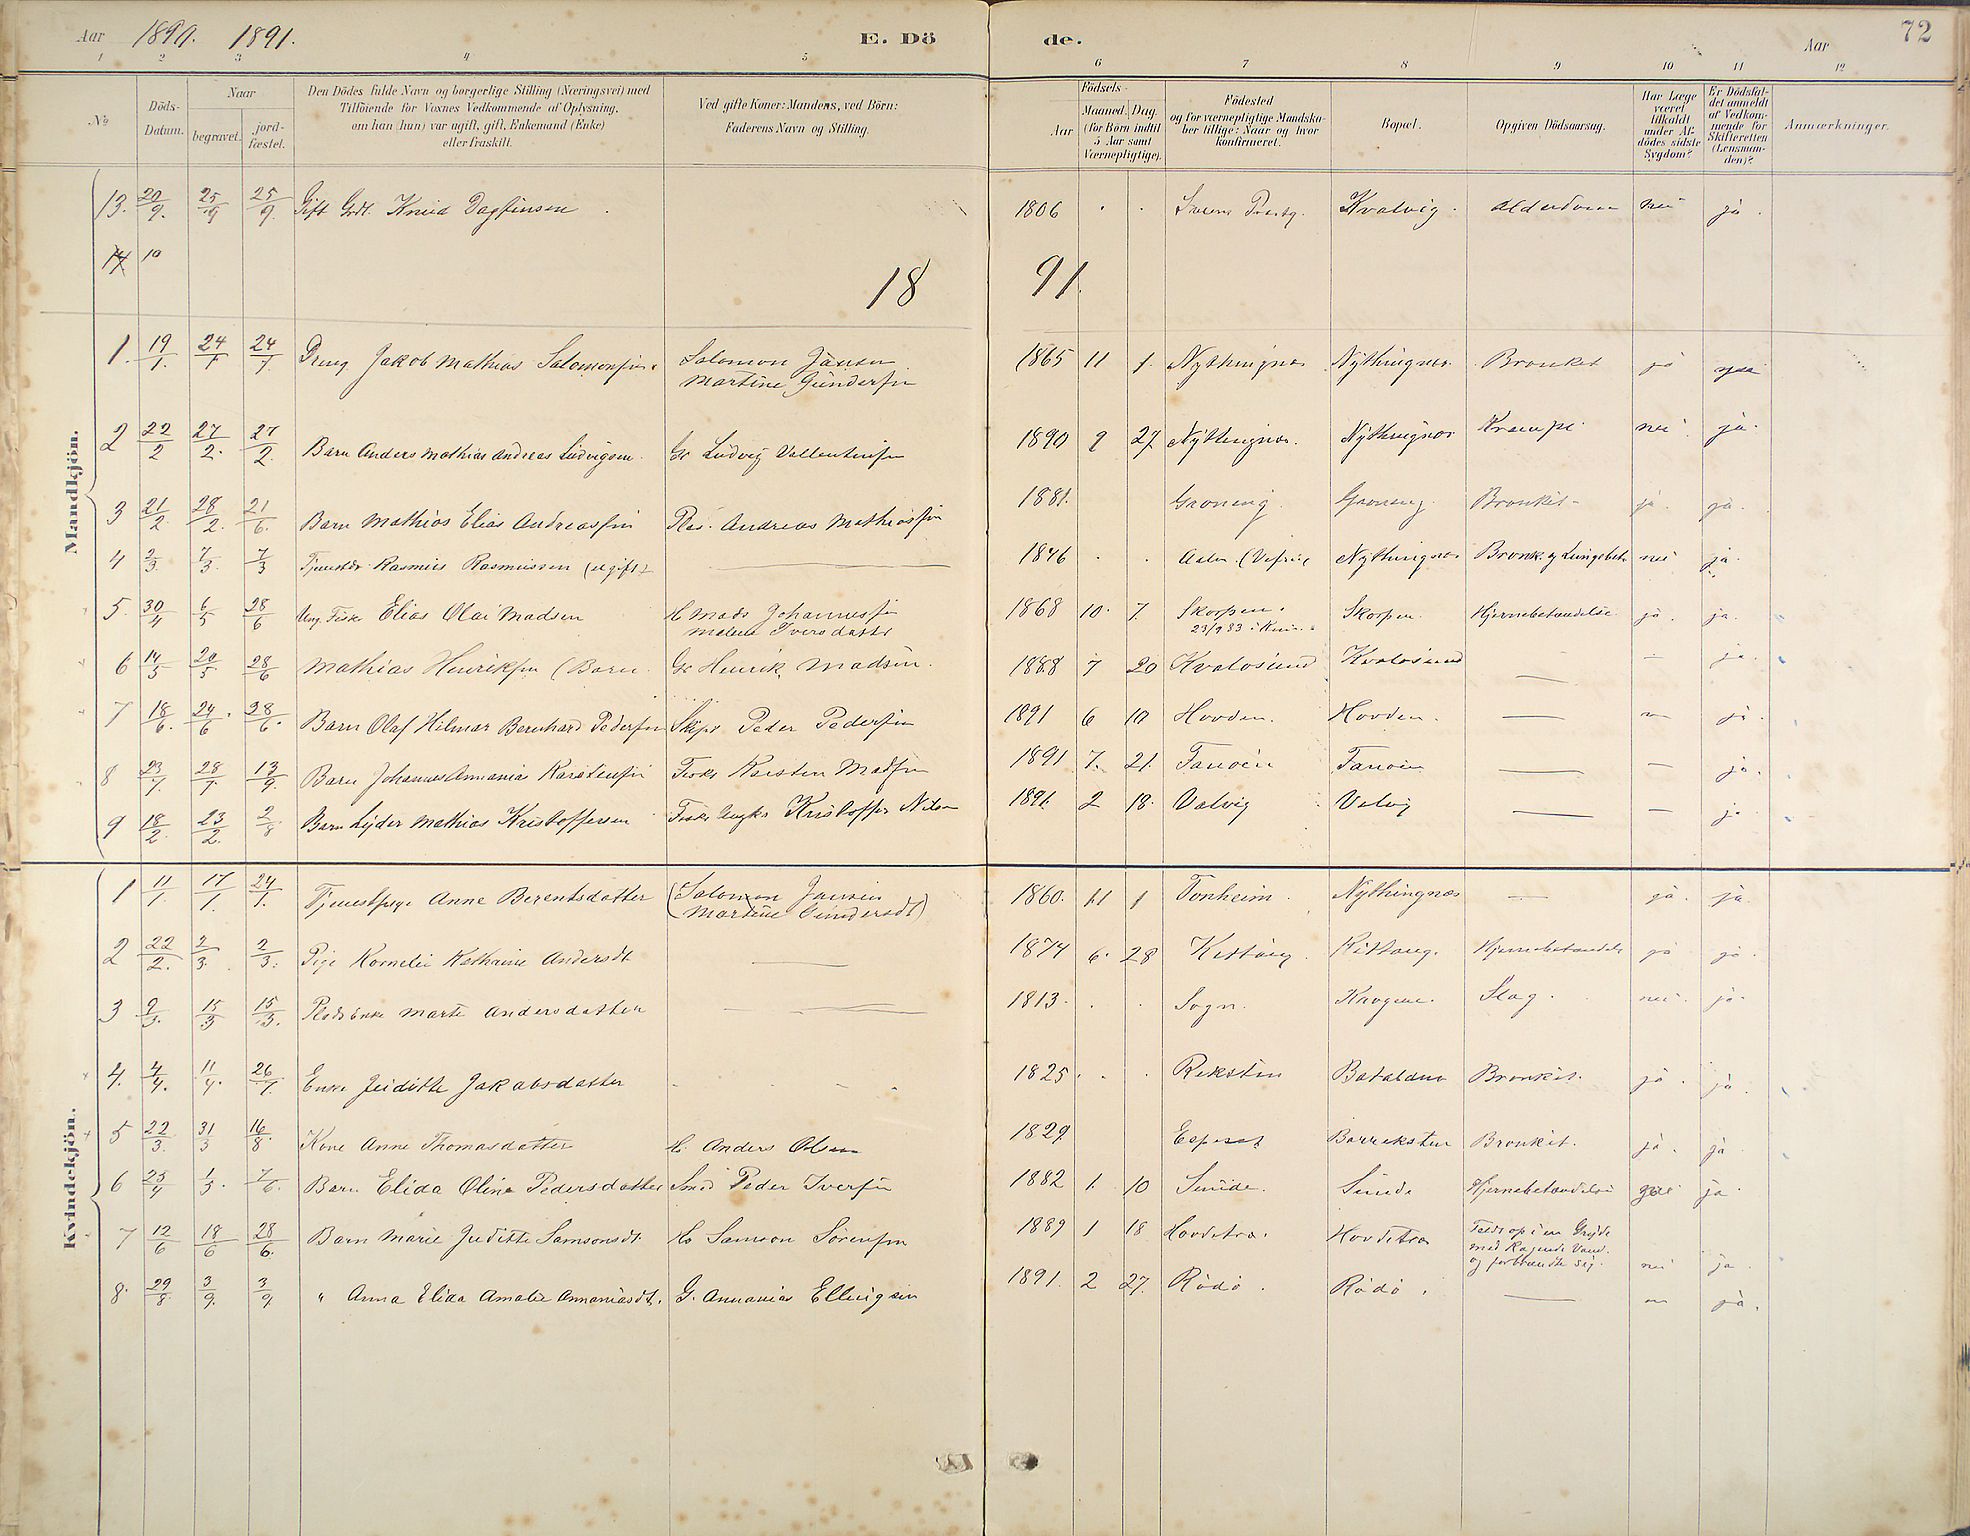 Aar 1890. 1891. E. Dö de. Aar 72
1 2 3 4 5 6 7 8 9 10 11 12
No
Döds-
Datum.
Naar
begravet.
jord-
fæstet.
Den Dödes fulde Navn og borgerlige Stilling (Næringsvei) med
Tilföiende for Voxnes Vedkommende af Oplysning,
om han (hun) var ugift, gift, Enkemand (Enke)
eller fraskilt.
Ved gifte Koner: Mandens, ved Börn:
Faderens Navn og Stilling.
Födsels-
Aar
Maaned. Dag.
(for Börn indtil
5 Aar samt
Værnepligtige).
Födested
og for værnepligtige Mandska-
ber tillige: Naar og hvor
konfirmeret.
Bopæl.
Opgiven Dödsaarsag.
Har Læge
været
tilkaldt
under Af-
dödes sidste
Sygdom?
Er Dödsfal-
det anmeldt
af Vedkom-
mende for
Skifteretten
(Lensman-
den)?
Anmærkninger.
13. 20/9. 25/9 25/9. Gift Grdt. Knud Dagfinsen 1806 Kvalvig. nei ja.
14 10
18 91.
Mandkjön.
1. 19/1. 24/1 24/1. Dreng Jakob Mathias Salomonsen. Salomon Jansen 1865 11 1. Nythingnes Nythingnes. Bronkit ja
Martine Gundersen
2 22/2 27/2. 27/2. Barn Anders Mathias Andreas Ludvigsen. Gr Ludvig Vallentinsen 1890 9 27. Nythingnes. Nythingnes Krampe nei ja.
3 21/2. 28/2. 21/6. Barn Mathias Elias Andreassen Plds. Andreas Mathiassen 1881. Groneng. Groneng. Bronkit ja. ja.
4 2/3 7/3. 7/3 Rasmus Rasmussen (ugift) 1846 Nythingnes Bronk. og Lungebet. nei ja.
5. 30/4 6/5 28/6 Ung. Fisk. Elias Olai Madsen H Mads Johannessen 1868 10. 7. Skorpen. Skorpen. Hjernebetændelse ja. ja.
Iversdatter 23/9 83 i Kinn.
6 14/5 20/5 28/6 Mathias Henriksen (Barn Gr Henrik Madsen. 1888 7 20 Kvalosund Kvalosund — ja.
7 18/6. 24/6. 28/6. Barn Olaf Hilmar Bernhard Pedersen Skipr Peder Pedersen 1891 6 10 Hovden. Hovden. — ja.
8 23/7. 28/7. 13/9. Barn Johannes Annanias Karstensen Fisker Karsten Madsen 1891 7. 21. Fanoen Fanoen — — ja.
9 18/2. 23/2. 2/8 Barn Lyder Mathias Kristoffersen Kristoffer Nilsen 1891. 2 18. Valvig Valvig — — ja.
Kvindekjön.
1 11/1. 17/1. 24/1. Tjenestpige Anne Berentsdatter (Salomon Jansen 1860. 11 1 Tonheim. Nythingnæs — ja. ja.
(Martine Gundersdt)
2 22/2. 2/3. 2/3. Pige Kornelie Kathrine Andersdt — 1874 6. 28 Kittang. Kittang. Hjernebetændelse ja ja.
3 9/3. 15/3 15/3. Plads Enke Marte Andersdatter — 1813. Sogn. Slag. nei. ja.
4. 4/4. 11/4. 26/7. Enke Juditte Jakobsdatter 1825. Reksten Batalden Bronkit. ja. ja.
5 22/3. 31/3 16/8. Kone Anne Thomasdatter H. Anders Olsen 1829 Espeset Barreksten Bronkit. ja. ja.
6 25/4 1/5. 7/6. Barn Elida Oline Pedersdatter Smed Peder Iversen 1882 1. 10 Sunde. Sunde Hjernebetændelse ja
7 12/6 18/6 28/6. Barn Marie Juditte Samsonsdt. Hs Samson Sörensen 1889 1 18 Hovdetræ. Hovdetræ Faldt op i en Gryde
med Kogende Vand.
og forbrændte sig. nei ja.
8. 29/8. 3/9. 3/9. " Anna Elida Amalie Annaniasdt. G. Annanias Ellingsen 1891. 2 27. Rödö. Rödö. — ja.